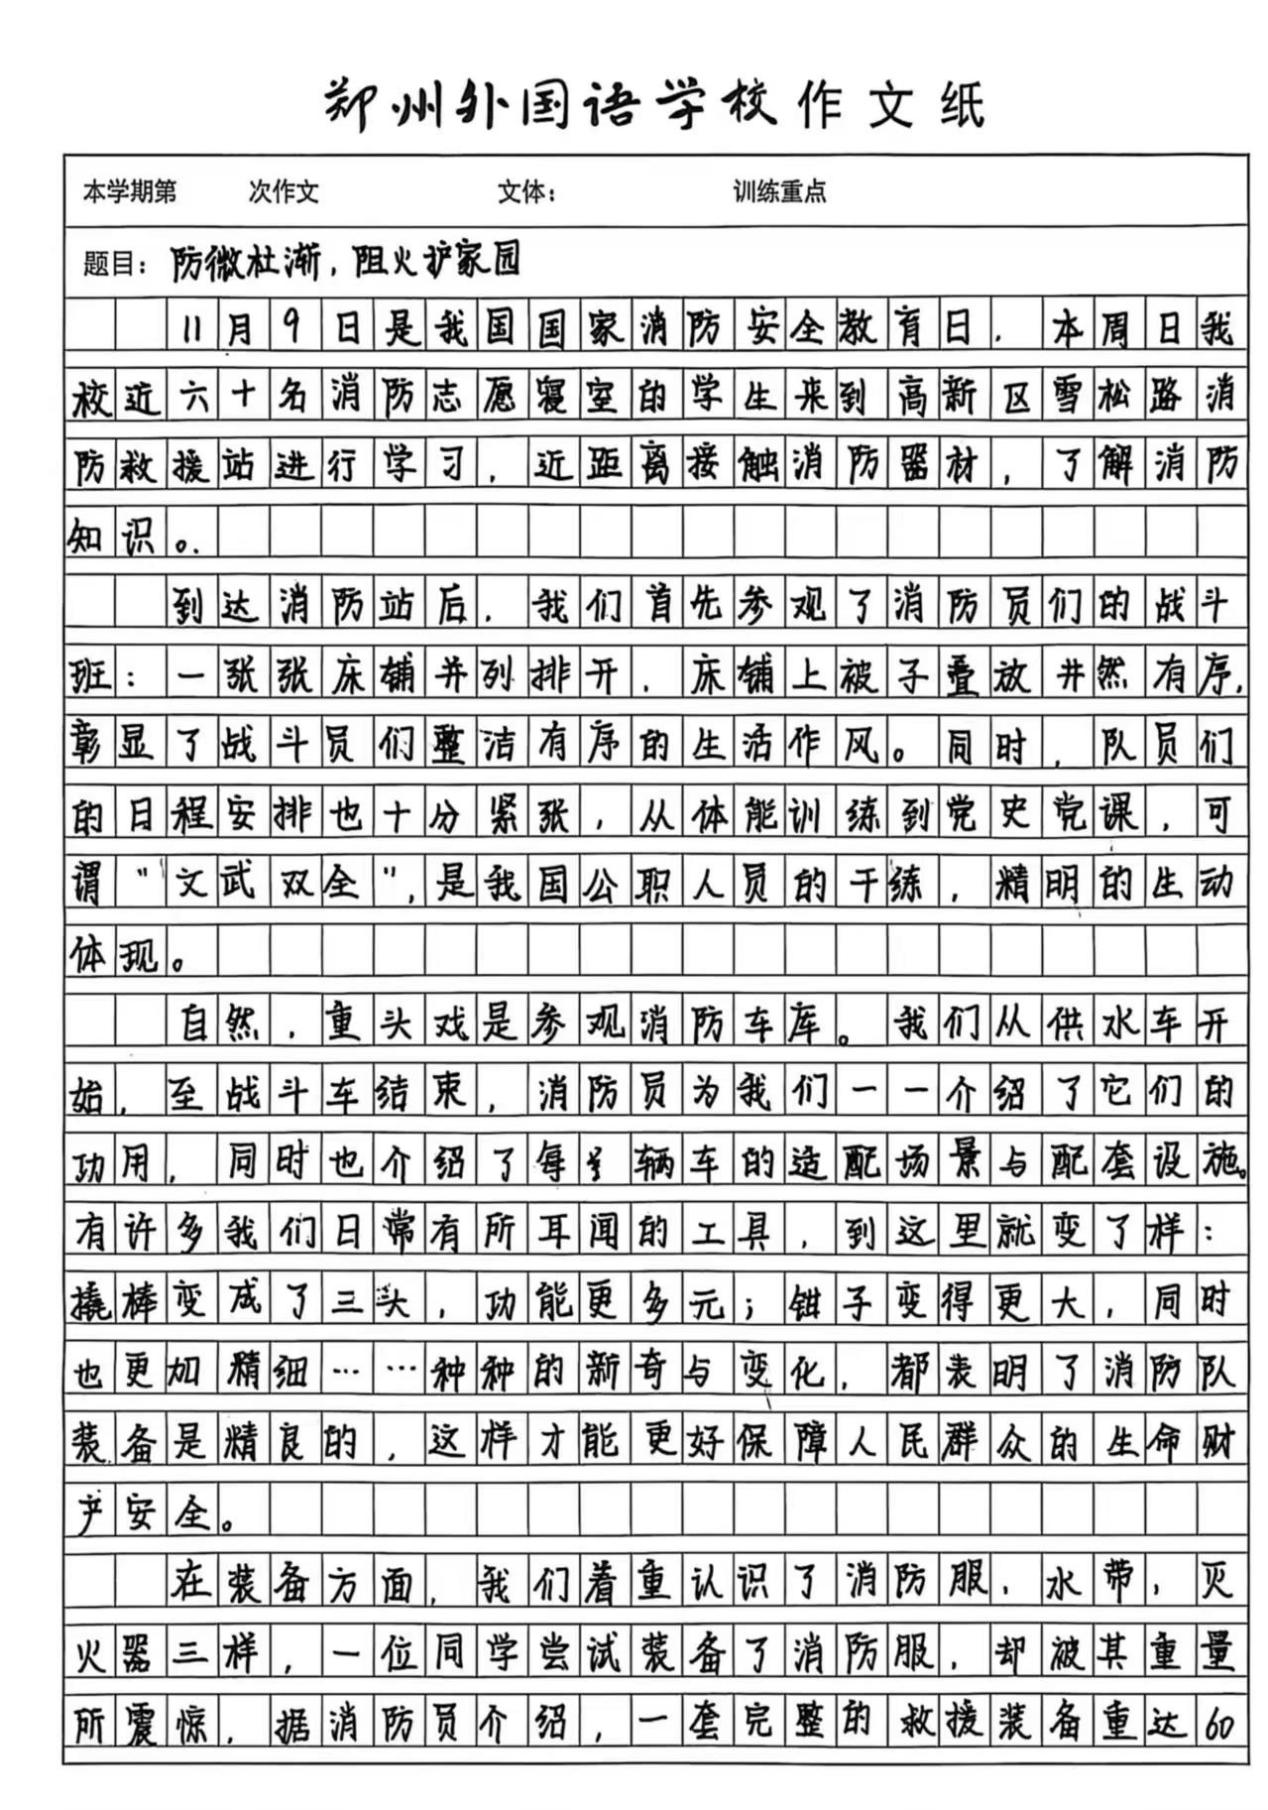 郑州外国语学校作文纸
本学期第 次作文 文体： 训练重点
题目：防微杜渐，阻火护家园
11月9日是我国国家消防安全教育日，本周日我
校近六十名消防志愿寝室的学生来到高新区雪松路消
防救援站进行学习，近距离接触消防器材，了解消防
知识。
到达消防站后，我们首先参观了消防员们的战斗
班：一张张床铺并列排开，床铺上被子叠放井然有序，
彰显了战斗员们整洁有序的生活作风。同时，队员们
的日程安排也十分紧张，从体能训练到党史党课，可
谓“文武双全”，是我国公职人员的干练，精明的生动
体现。
自然，重头戏是参观消防车库。我们从供水车开
始，至战斗车结束，消防员为我们一一介绍了它们的
功用，同时也介绍了每辆车的适配场景与配套设施。
有许多我们日常有所耳闻的工具，到这里就变了样：
撬棒变成了三头，功能更多元；钳子变得更大，同时
也更加精细……种种的新奇与变化，都表明了消防队
装备是精良的，这样才能更好保障人民群众的生命财
产安全。
在装备方面，我们着重认识了消防服、水带，灭
火器三样，一位同学尝试装备了消防服，却被其重量
所震惊，据消防员介绍，一套完整的救援装备重达60